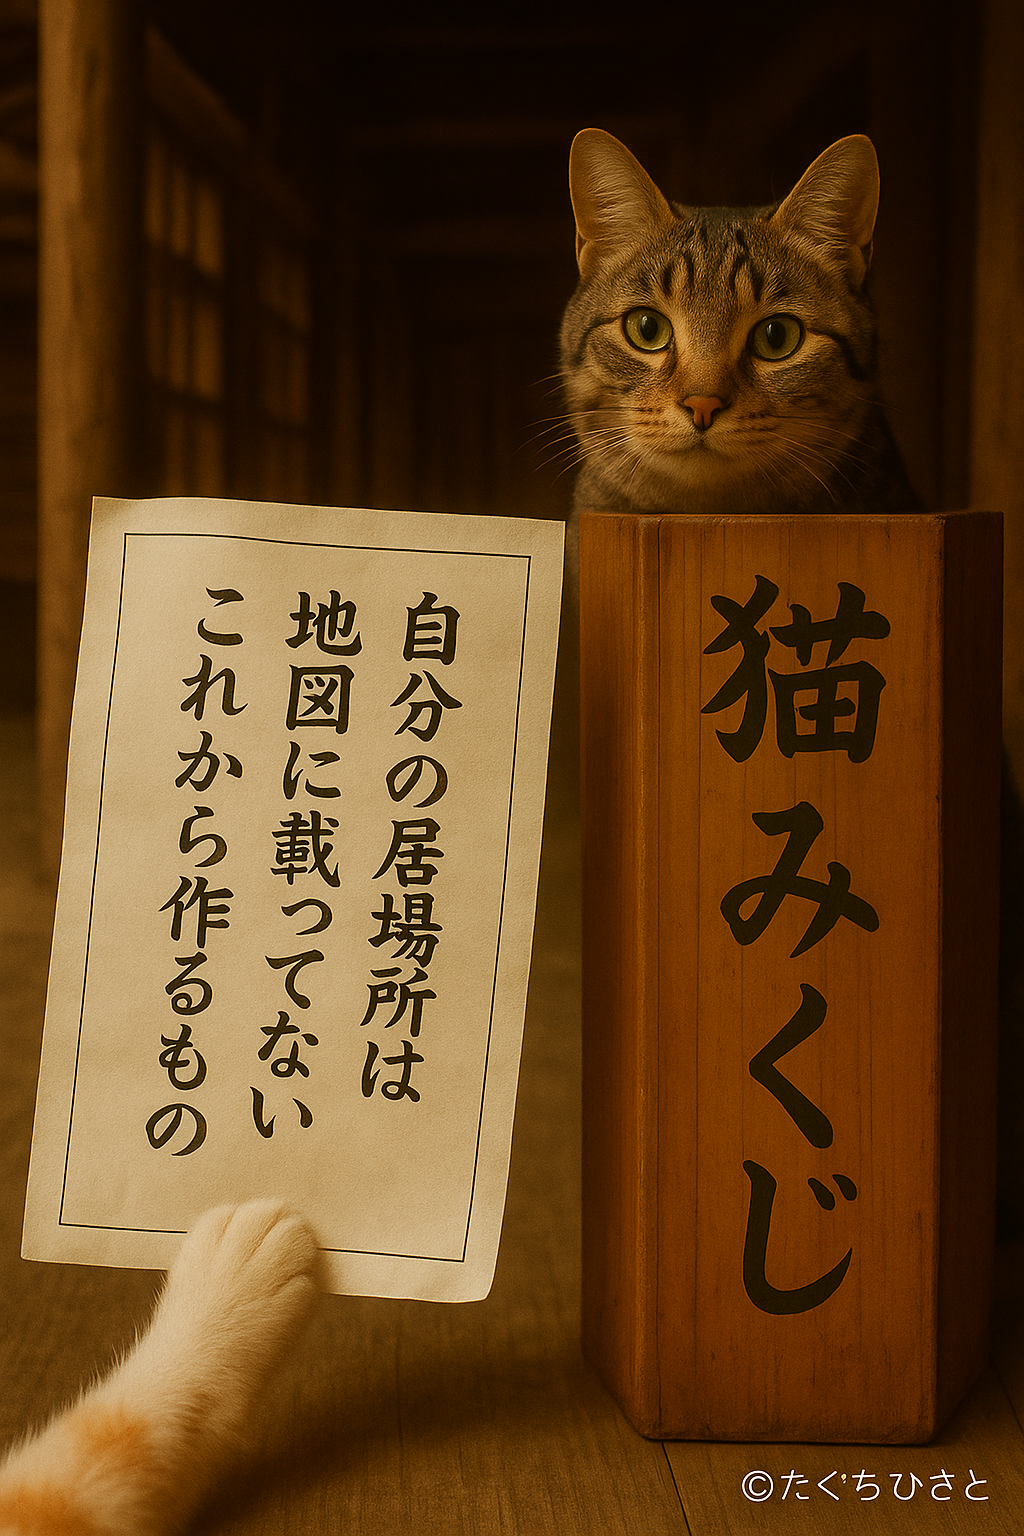 自分の居場所は
地図に載ってない
これから作るもの
猫みくじ
©たぐちひさと